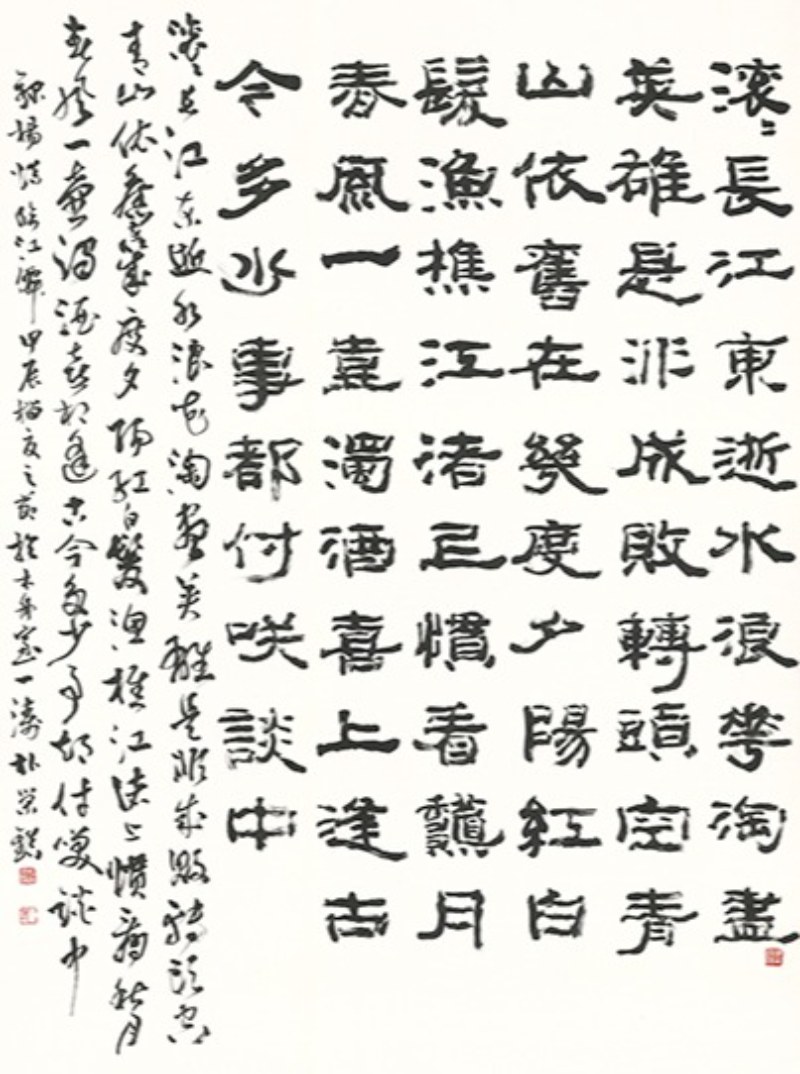 滾〻長江東逝水浪花淘盡
英雄是非成敗轉頭空青
山依舊在幾度夕陽紅白
髮漁樵江渚已慣看龝月
春風一壺濁酒喜上逢古
今多少事都付咲談中
滾〻長江東逝水浪花淘盡英雄是非成敗轉頭空
青山依舊在幾度夕陽紅白髮漁樵江渚上慣看秋月
春風一壺濁酒喜相逢古今多少事都付笑談中
楊慎臨江 甲辰 夏之節於 室一濤朴榮